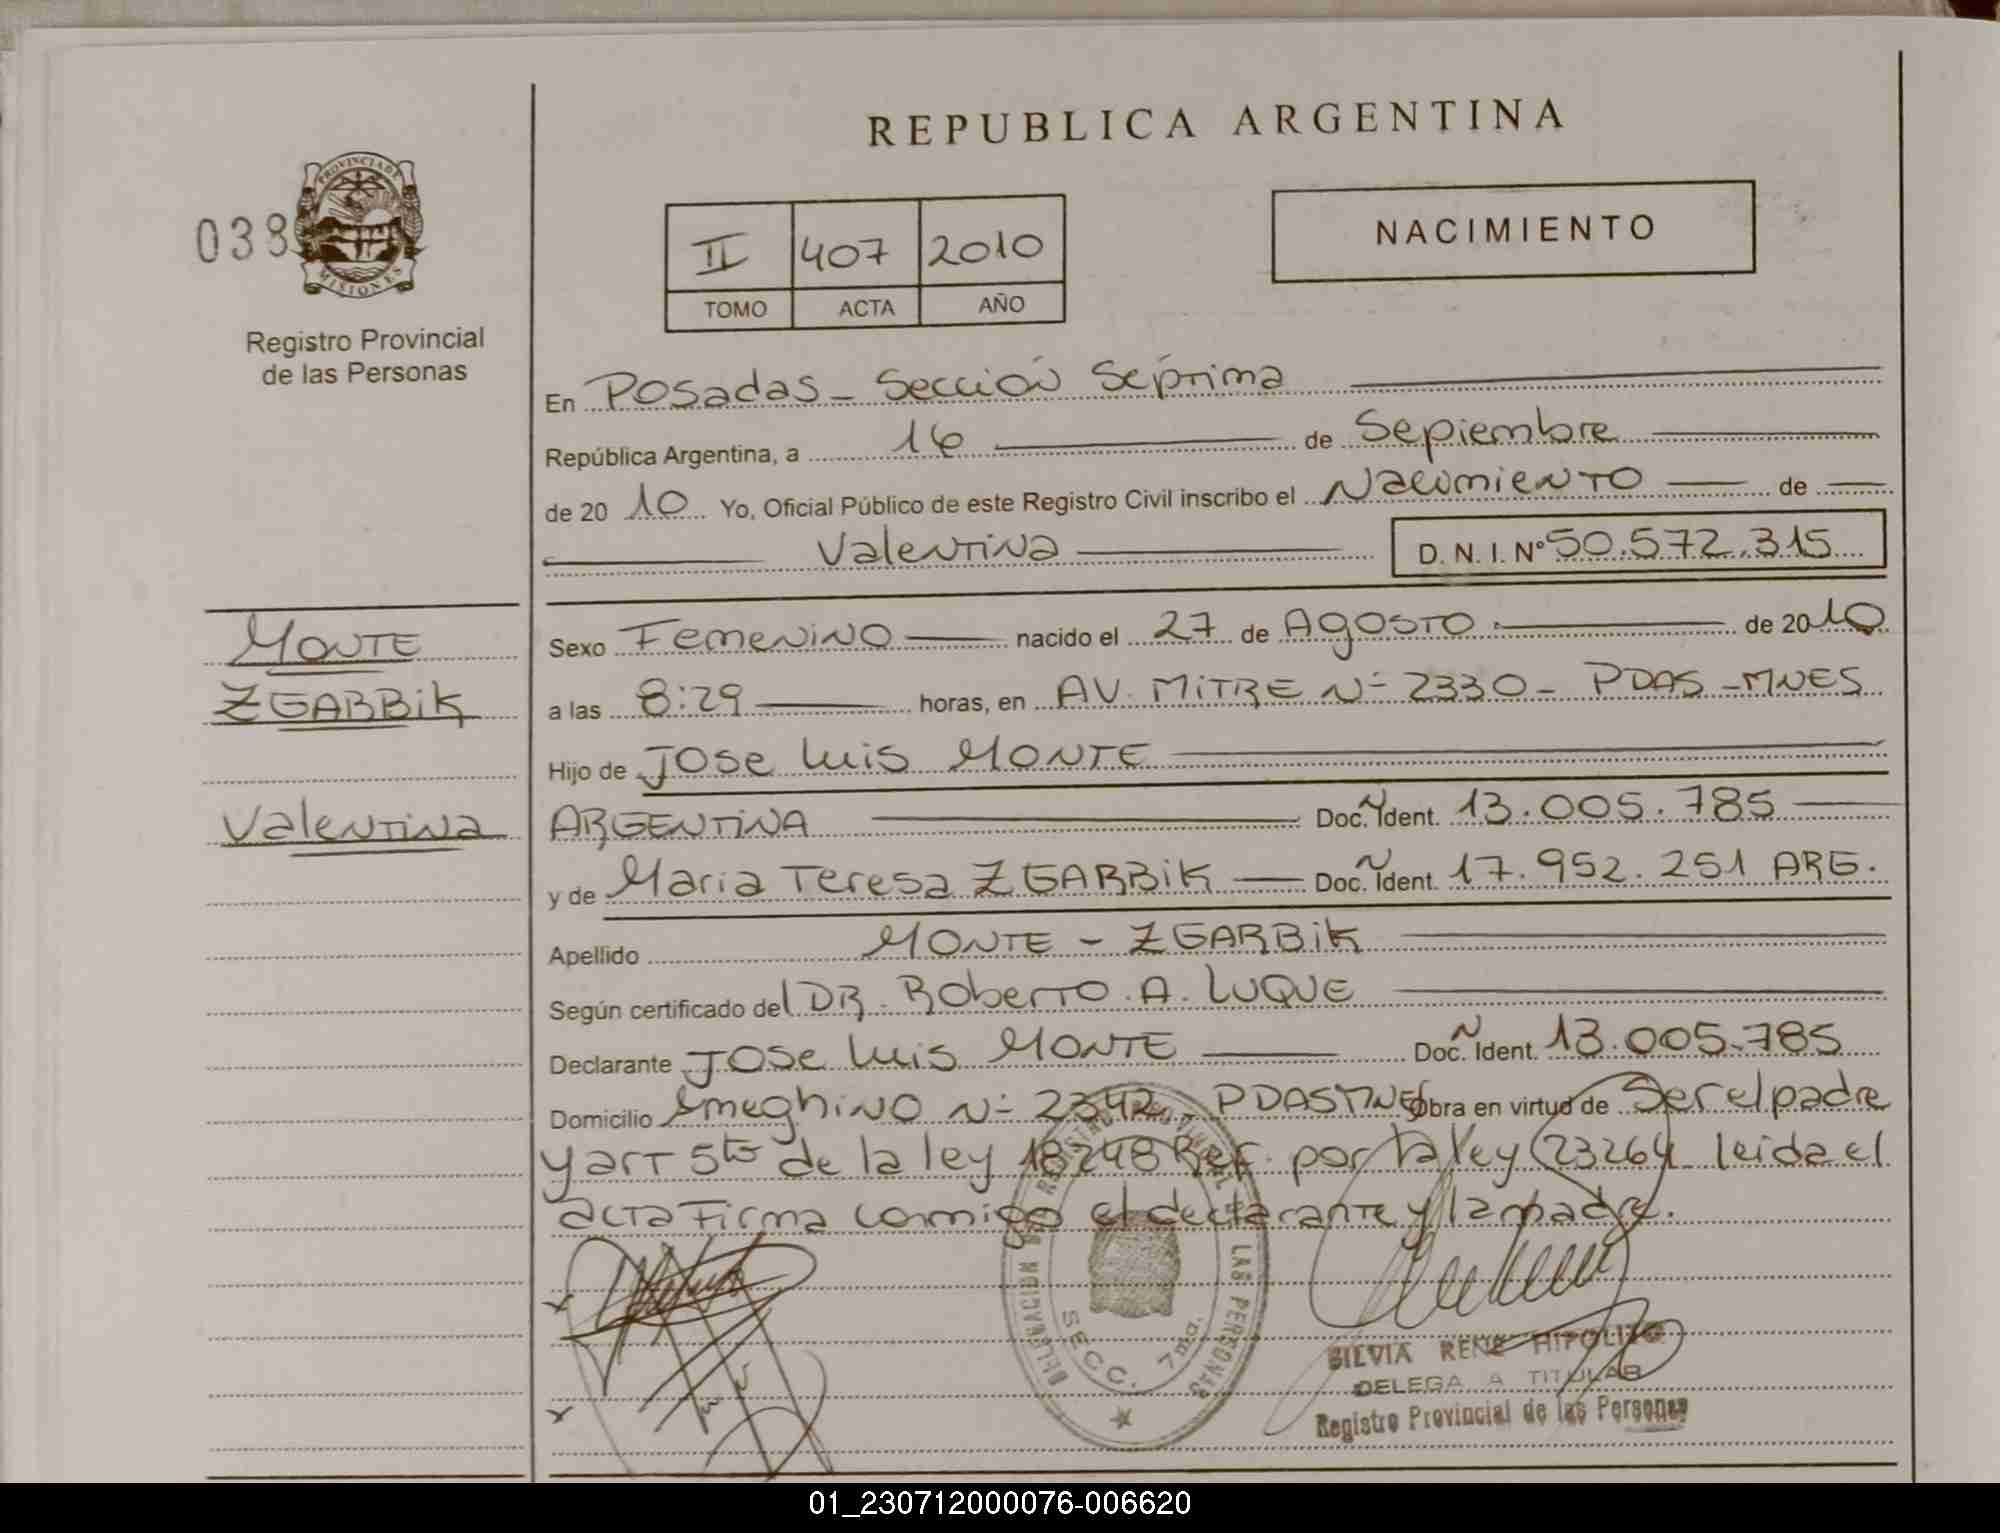 REPUBLICA ARGENTINA
038
PROVINCIA DE
MISIONES
Registro Provincial
de las Personas
II 407 2010
TOMO ACTA AÑO
NACIMIENTO
En Posadas - Sección Séptima
República Argentina, a 16 de Sepiembre
de 2010 Yo, Oficial Público de este Registro Civil inscribo el Nacimiento de
Valentina D. N. I. Nº 50.572.315
MONTE
ZGARBIK
Valentina
Sexo Femenino nacido el 27 de Agosto de 2010
a las 8:29 horas, en AV. MITRE Nº 2330 - PDAS - MNES
Hijo de Jose Luis MONTE
ARGENTINA Doc. Ident. 13.005.785
y de Maria Teresa ZGARBIK Doc. Ident. 17.952.251 ARG.
Apellido MONTE - ZGARBIK
Según certificado del DR. Roberto A. LUQUE
Declarante Jose Luis MONTE Doc. Ident. 13.005.785
Domicilio Ameghino Nº 2342 - PDAS MNES Obra en virtud de Ser el padre
y art 5to de la ley 18248 Ref. por la ley 23264 leida el
acta Firma conmigo el declarante y la madre.
DELEGACION DEL REGISTRO PROVINCIAL DE LAS PERSONAS
SECC. 7ma.
SILVIA RENE HIPOLITO
DELEGADA TITULAR
Registro Provincial de las Personas
01_230712000076-006620